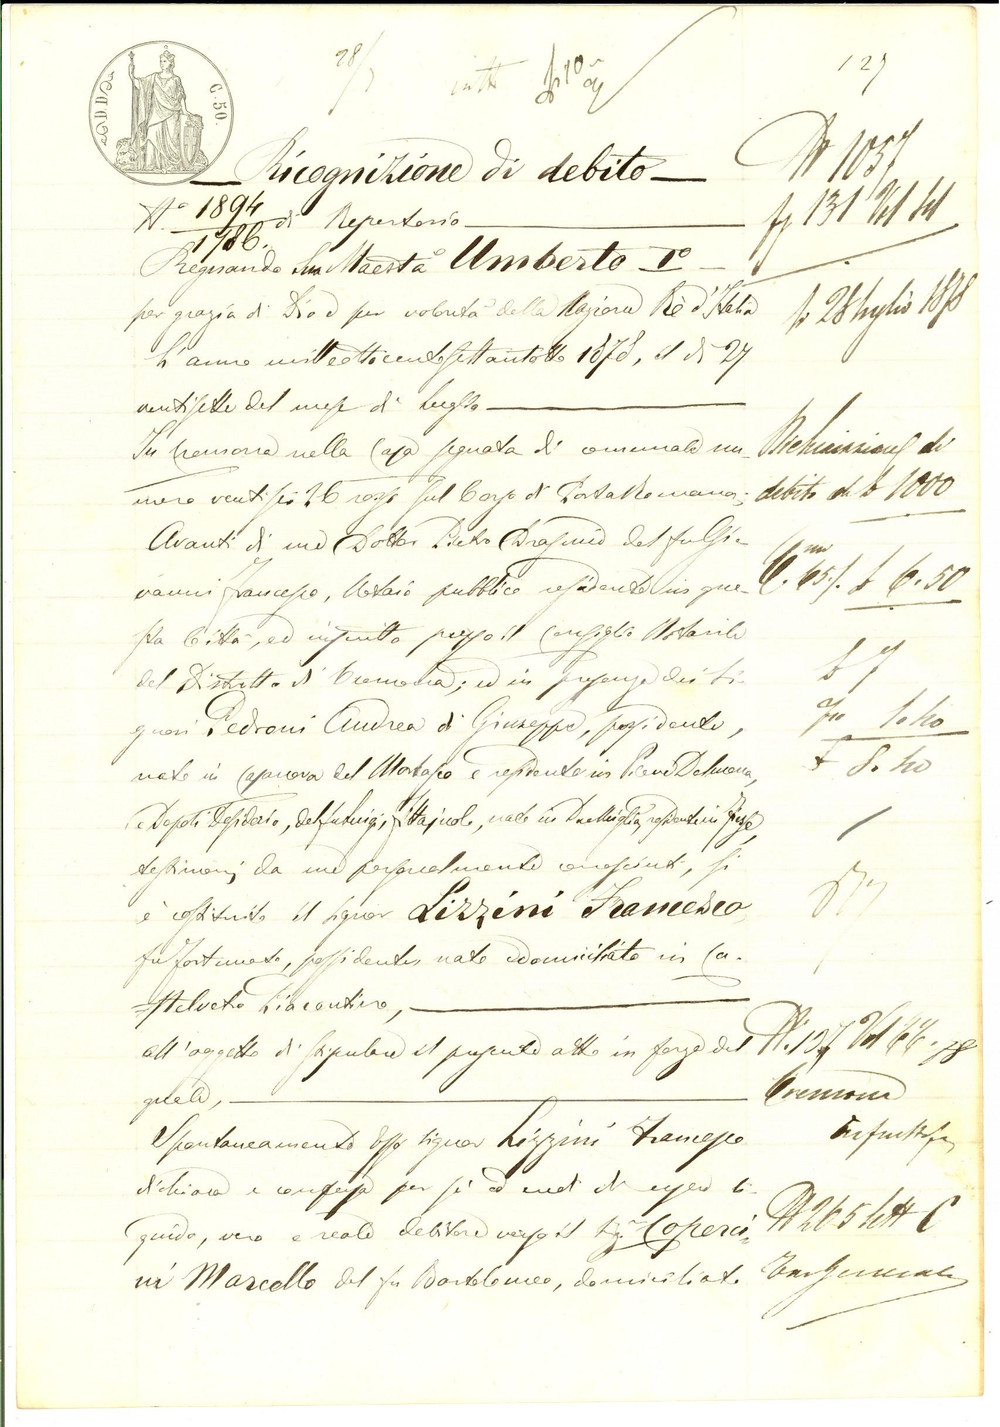 C. 50.
127
Ricognizione di debito
N.° 1894 / 1786. di Repertorio
Regnando Sua Maestà Umberto I°
per grazia di Dio e per volontà della Nazione Rè d'Italia
L'anno milleottocentosettantotto 1878, il dì 27
ventisette del mese di Luglio
In Cremona nella Casa segnata di comunale nu-
mero ventisei 26 rosso sul Corso di Porta Romana;
Avanti di me Dottor Pietro del fu Gio-
vanni Francesco, Notaio pubblico residente in que-
sta Città, ed inscritto presso il Consiglio Notarile
del Distretto di Cremona; ed in presenza dei Si-
gnori Pedroni Andrea di Giuseppe, possidente,
nato in Casanova del Morbasco e residente in Pieve Delmona,
e Desiderio, del fu Luigi, fittajuolo, nato in Due Miglia, residente in
testimonj da me personalmente conosciuti, si
è costituito il signor Lizzini Francesco
fu Fortunato, possidente, nato e domiciliato in Ca-
stelvetro Piacentino,
all'oggetto di stipulare il presente atto in forza del
quale,
Spontaneamente esso signor Lizzini Francesco
dichiara e confessa per sé ed eredi di essere li-
quido, vero e reale debitore verso il Sig. Coperci-
ni Marcello del fu Bartolomeo, domiciliato
N° 1057
28 luglio 1878
Dichiarazione di
debito di £ 1000
£ 6.50
£ 7
1.20
£ 8.20
Cremona
N° 265